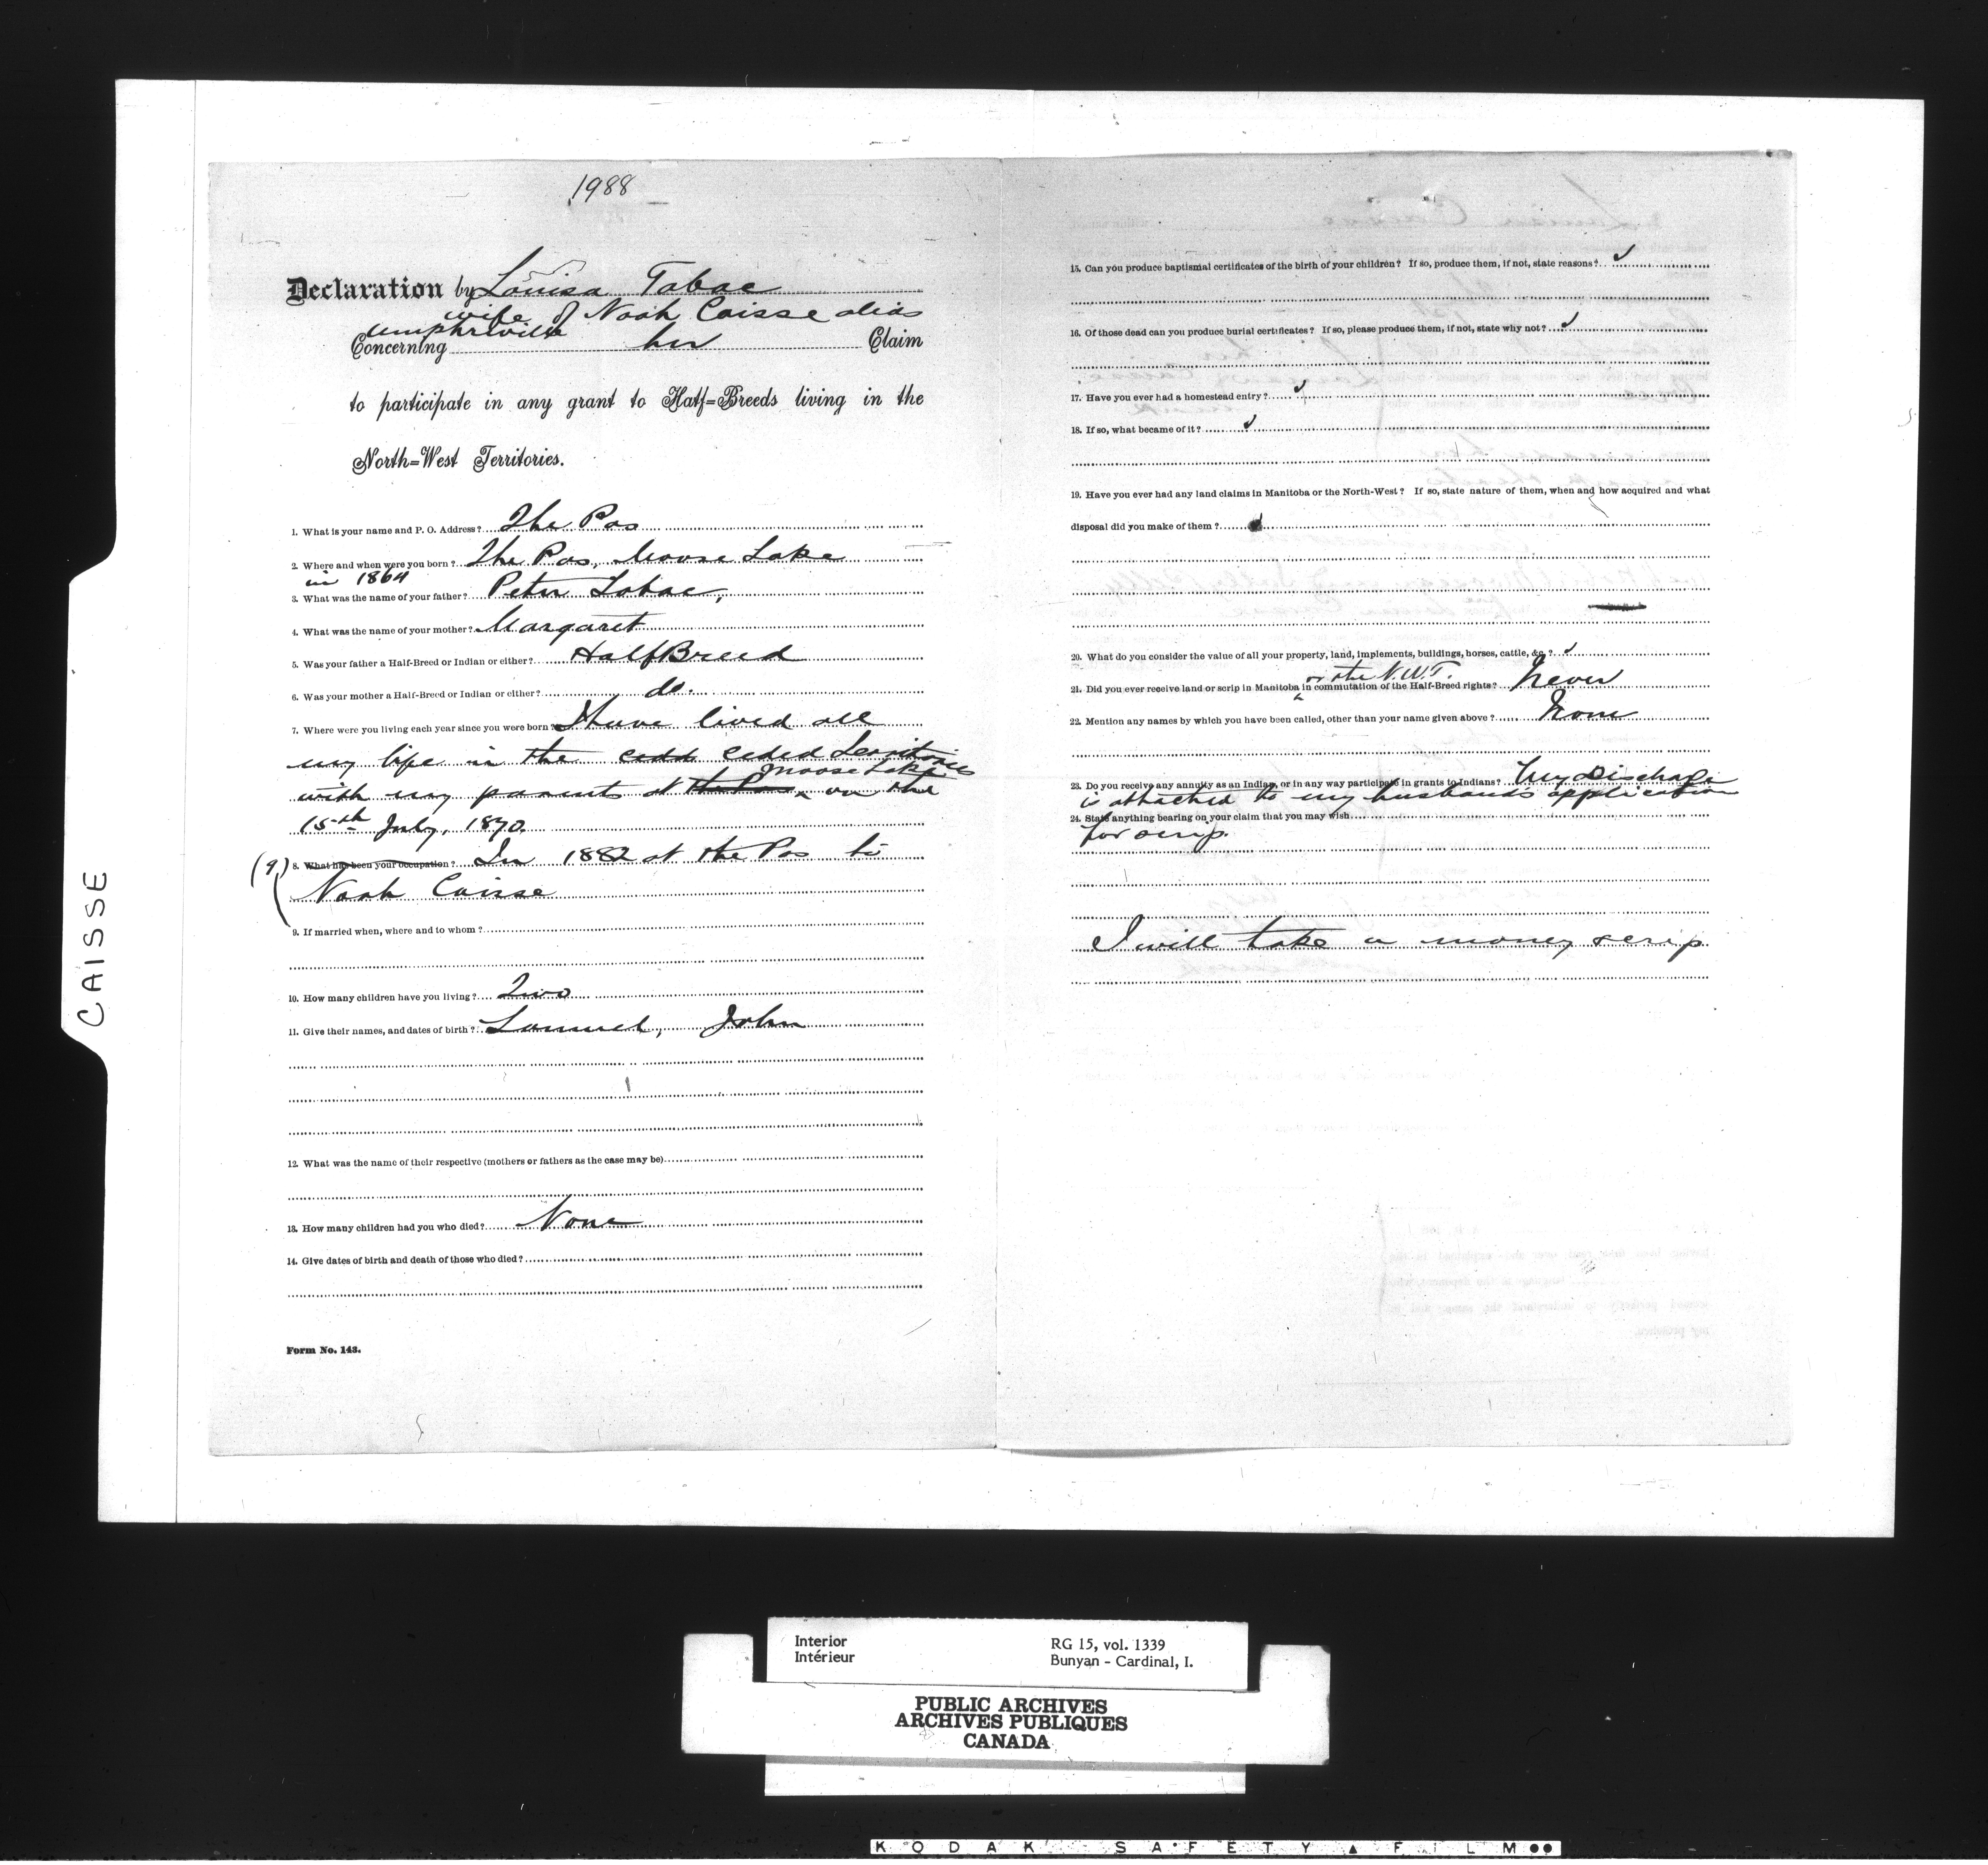 1988
Declaration by Louisa Tabac
wife of Noah Caisse alias
Umphreville
Concerning her Claim
to participate in any grant to Half=Breeds living in the
North=West Territories.
1. What is your name and P. O. Address? The Pas
2. Where and when were you born? The Pas, Moose Lake
in 1864
3. What was the name of your father? Peter Tabac,
4. What was the name of your mother? Margaret
5. Was your father a Half-Breed or Indian or either? HalfBreed
6. Was your mother a Half-Breed or Indian or either? do.
7. Where were you living each year since you were born? I have lived all
my life in the cedd ceded Territories
with my parents at the Pas Moose Lake on the
15th July, 1870.
(9) 8. What has been your occupation? In 1882 at the Pas to
Noah Caisse
9. If married when, where and to whom?
10. How many children have you living? Two
11. Give their names, and dates of birth? Samuel, John
12. What was the name of their respective (mothers or fathers as the case may be)
13. How many children had you who died? None
14. Give dates of birth and death of those who died?
Form No. 143.
15. Can you produce baptismal certificates of the birth of your children? If so, produce them, if not, state reasons?
16. Of those dead can you produce burial certificates? If so, please produce them, if not, state why not?
17. Have you ever had a homestead entry?
18. If so, what became of it?
19. Have you ever had any land claims in Manitoba or the North-West? If so, state nature of them, when and how acquired and what
disposal did you make of them?
20. What do you consider the value of all your property, land, implements, buildings, horses, cattle, &c.?
or the N.W.T.
21. Did you ever receive land or scrip in Manitoba in commutation of the Half-Breed rights? Never
22. Mention any names by which you have been called, other than your name given above? None
23. Do you receive any annuity as an Indian, or in any way participate in grants to Indians? My Discharge
is attached to my husband's application
24. State anything bearing on your claim that you may wish
for scrip.
I will take a money scrip.
CAISSE
Interior
Intérieur
RG 15, vol. 1339
Bunyan - Cardinal, I.
PUBLIC ARCHIVES
ARCHIVES PUBLIQUES
CANADA
KODAK SAFETY ▲ FILM ●●